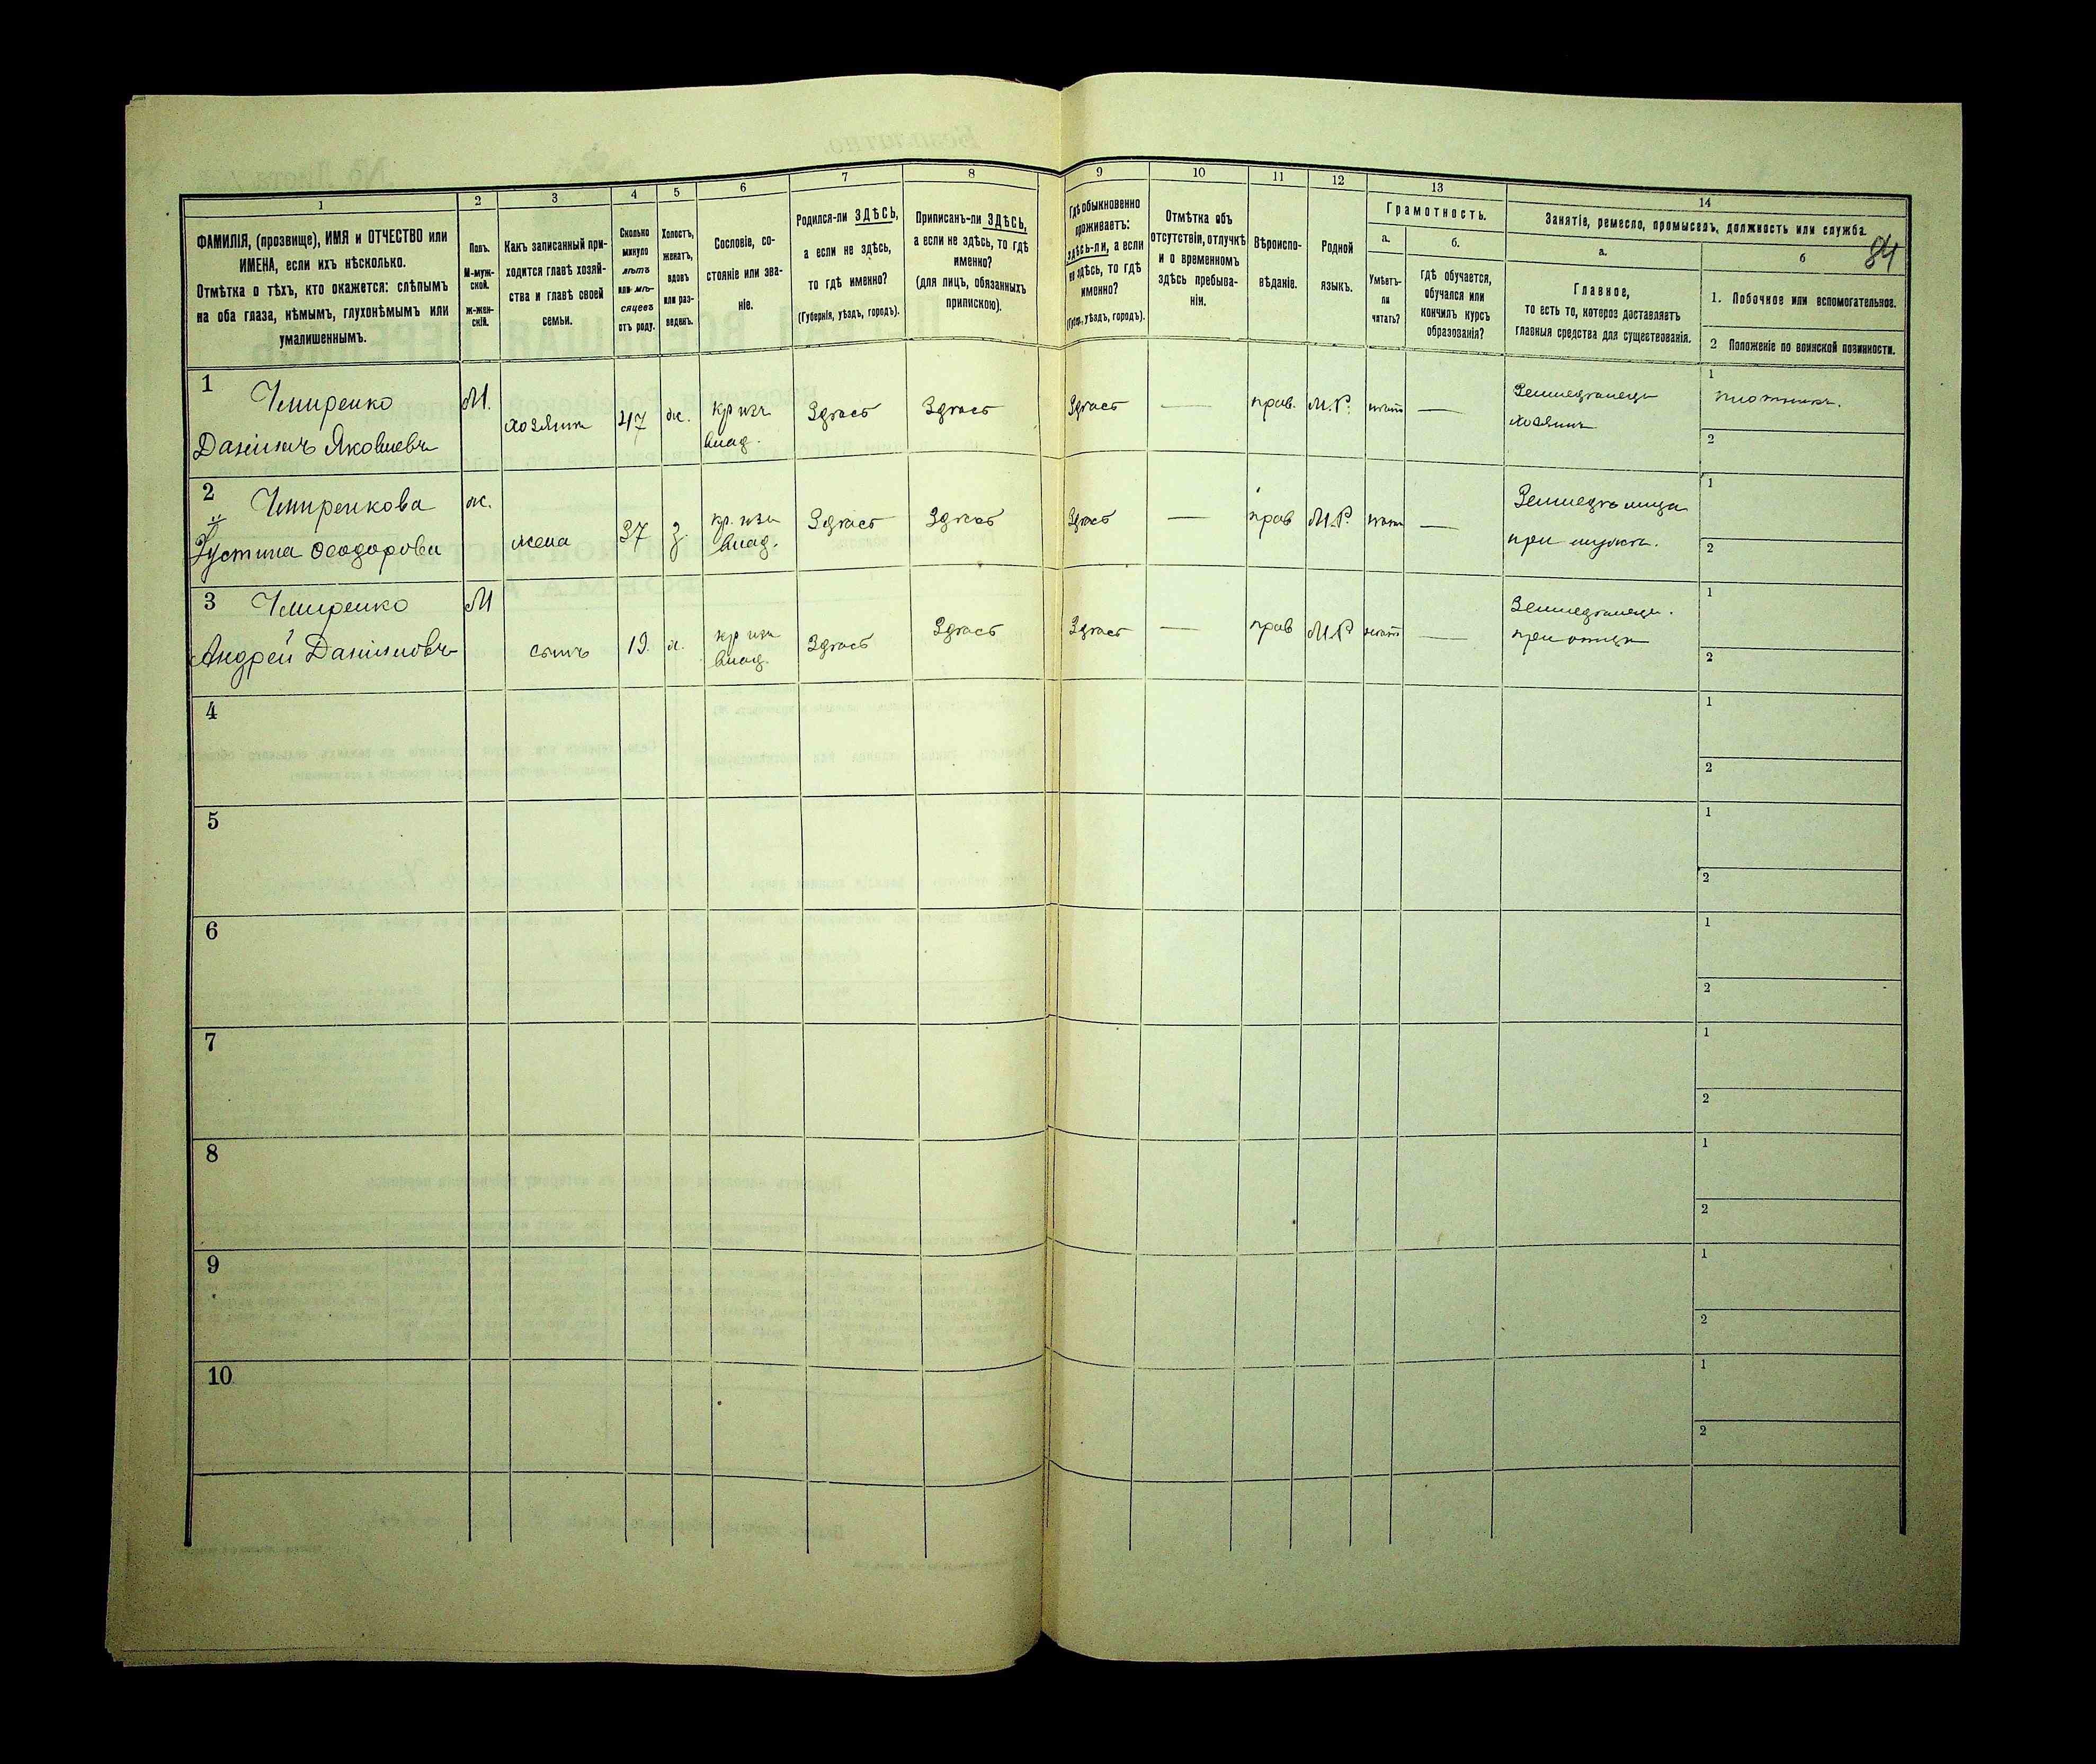 84
1
2
3
4
5
6
7
8
9
10
11
12
13
14
ФАМИЛІЯ, (прозвище), ИМЯ и ОТЧЕСТВО или
ИМЕНА, если ихъ нѣсколько.
Отмѣтка о тѣхъ, кто окажется: слѣпымъ
на оба глаза, нѣмымъ, глухонѣмымъ или
умалишеннымъ.
Полъ.
М-муж-
ской.
Ж-жен-
скій.
Какъ записанный при-
ходится главѣ хозяй-
ства и главѣ своей
семьи.
Сколько
минуло
лѣтъ
или мѣ-
сяцевъ
отъ роду.
Холостъ,
женатъ,
вдовъ
или раз-
веденъ.
Сословіе, со-
стояніе или зва-
ніе.
Родился-ли ЗДѢСЬ,
а если не здѣсь,
то гдѣ именно?
(Губернія, уѣздъ, городъ).
Приписанъ-ли ЗДѢСЬ,
а если не здѣсь, то гдѣ
именно?
(для лицъ, обязанныхъ
припискою).
Гдѣ обыкновенно
проживаетъ:
здѣсь-ли, а если
не здѣсь, то гдѣ
именно?
(Губер., уѣздъ, городъ).
Отмѣтка объ
отсутствіи, отлучкѣ
и о временномъ
здѣсь пребыва-
ніи.
Вѣроиспо-
вѣданіе.
Родной
языкъ.
Грамотность.
а.
Умѣетъ-
ли
читать?
б.
гдѣ обучается,
обучался или
кончилъ курсъ
образованія?
Занятіе, ремесло, промыселъ, должность или служба.
а.
Главное,
то есть то, которое доставляетъ
главныя средства для существованія.
б
1. Побочное или вспомогательное.
2 Положеніе по воинской повинности.
1 Чмиренко
Даніилъ Яковлевъ
М.
хозяинъ
47
ж.
кр изъ
влад.
Здѣсь
Здѣсь
Здѣсь
—
прав.
М.Р.
нѣтъ
—
Земледѣлецъ
хозяинъ
1
плотникъ.
2
2 Чмиренкова
Іустина Ѳеодорова
ж.
жена
37
з.
кр. изъ
влад.
Здѣсь
Здѣсь
Здѣсь
—
прав
М.Р.
нѣтъ
—
Земледѣлица
при мужѣ.
1
2
3 Чмиренко
Андрей Даніиловъ
М
сынъ
19.
х.
кр изъ
влад.
Здѣсь
Здѣсь
Здѣсь
—
прав
М.Р
нѣтъ
—
Земледѣлецъ.
при отцѣ
1
2
4
1
2
5
1
2
6
1
2
7
1
2
8
1
2
9
1
2
10
1
2